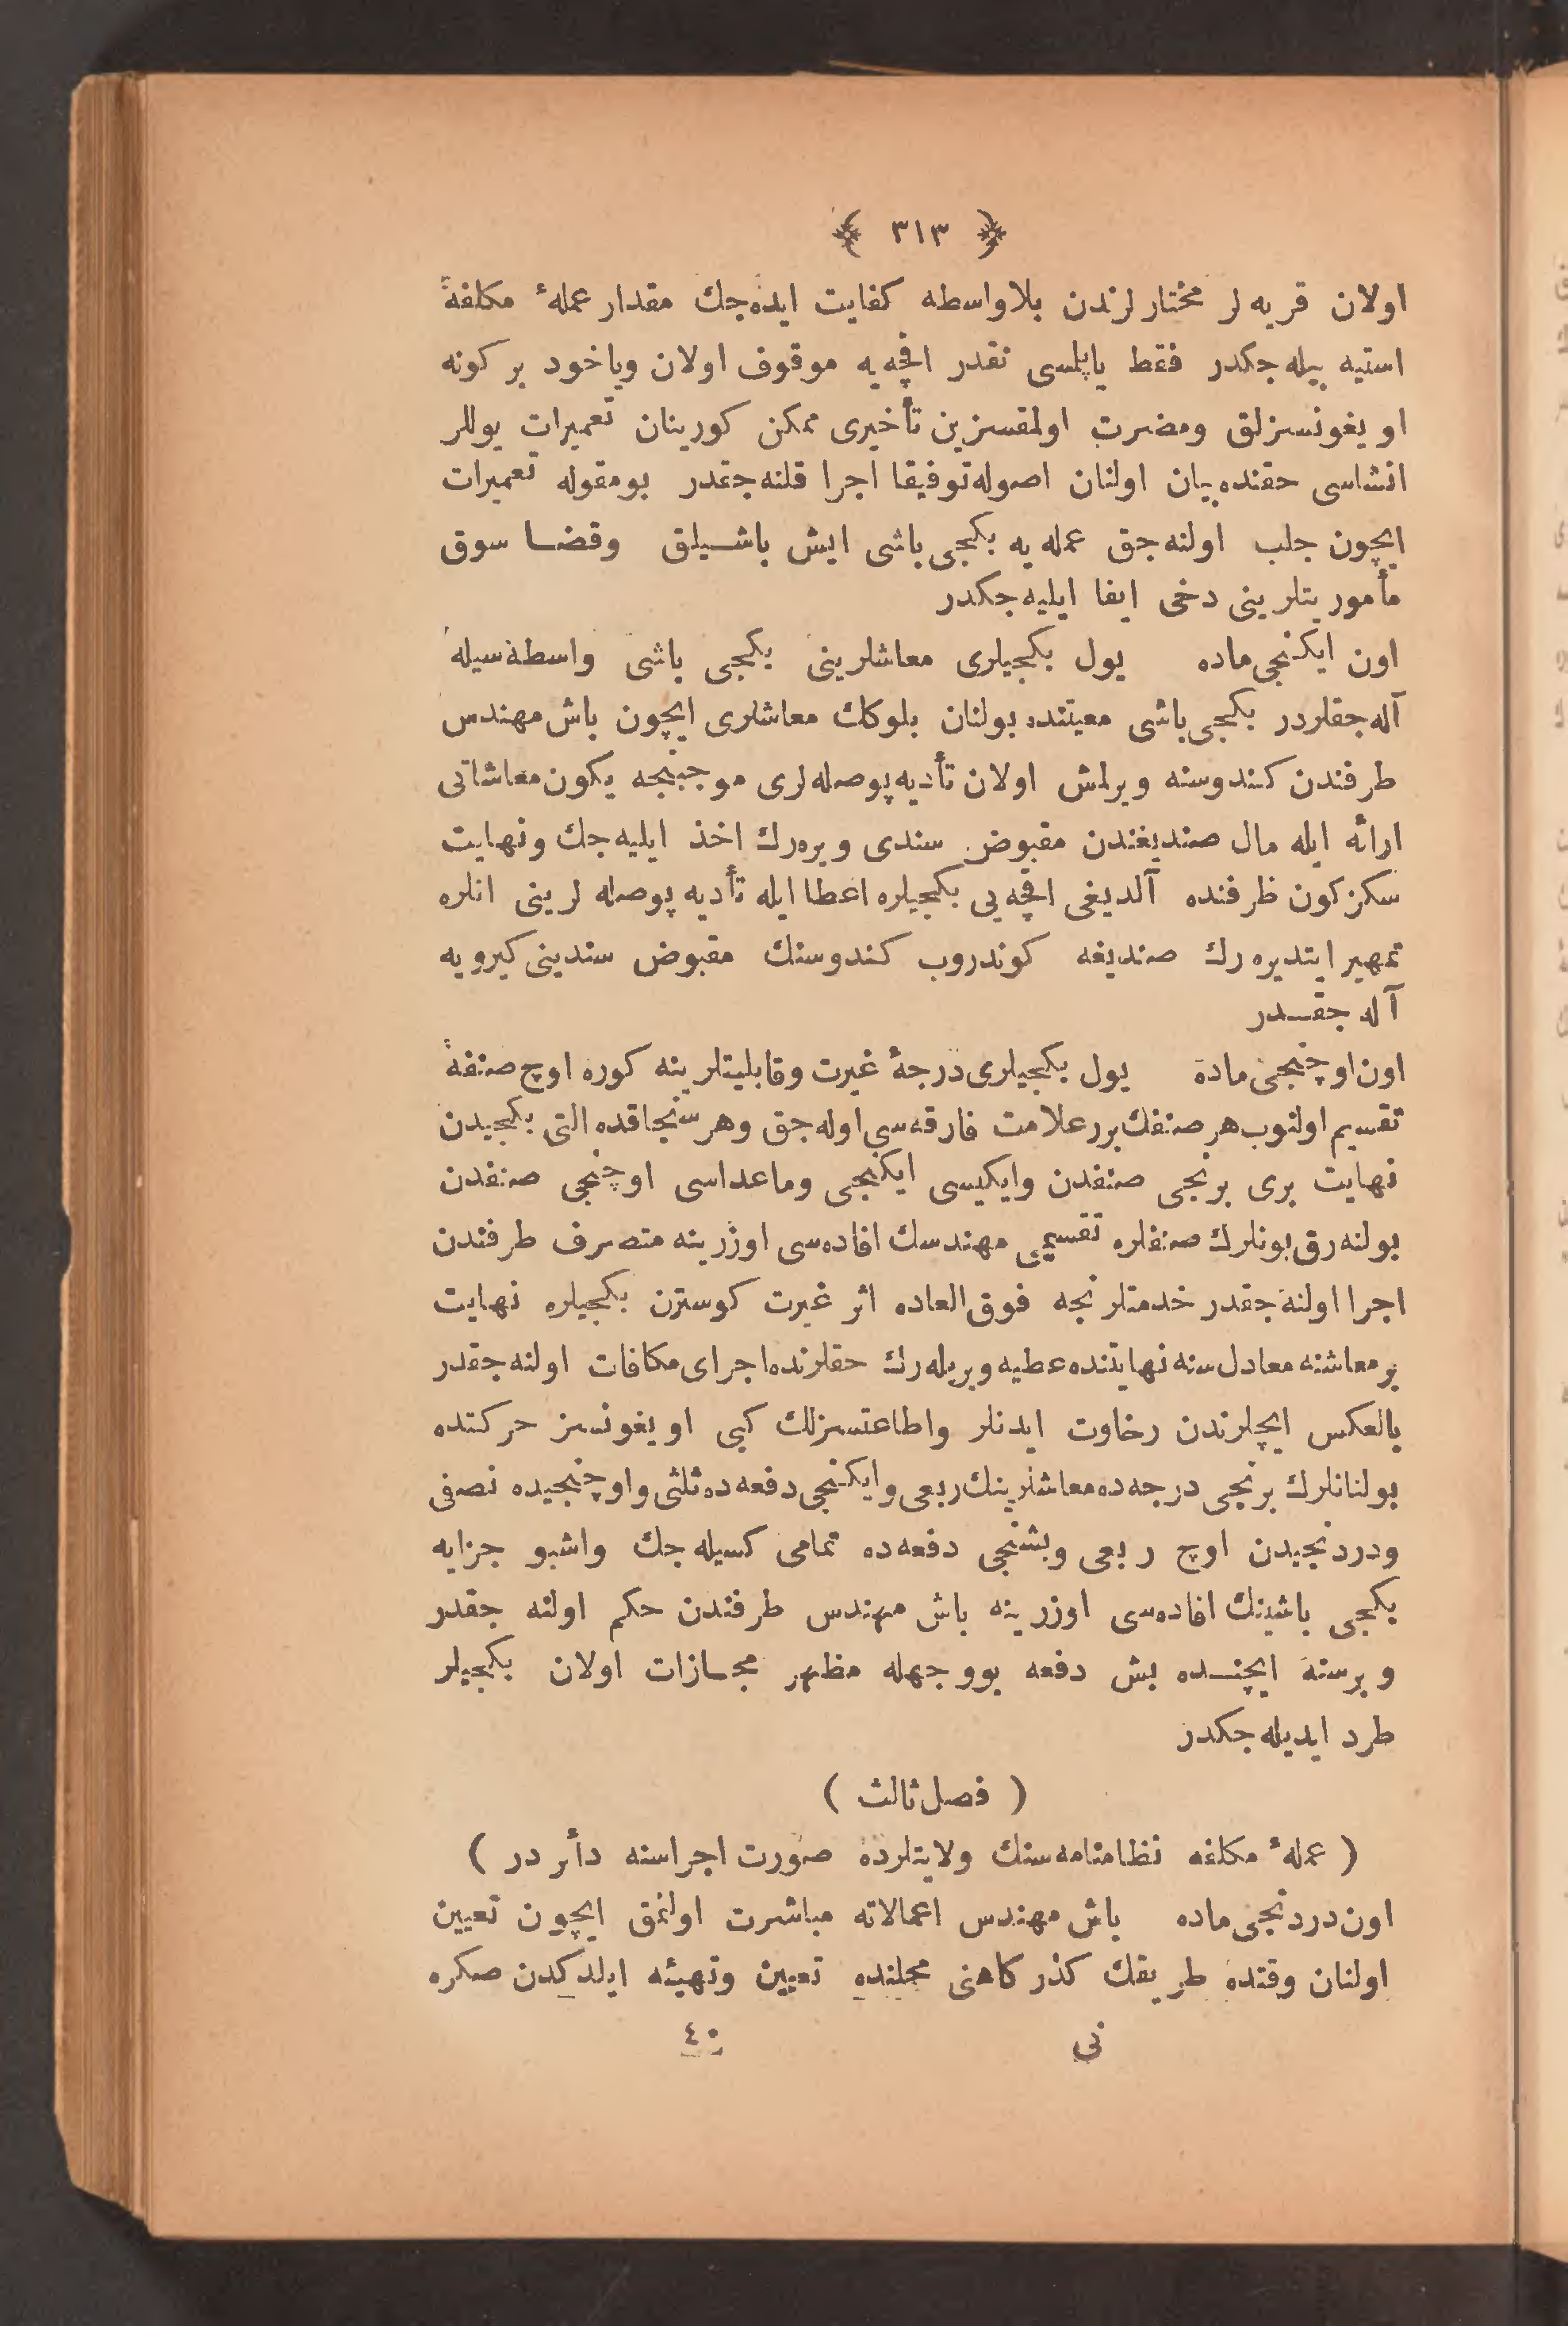 ﴿ ٣١٣ ﴾
اولان قریه‌لر مختارلرندن بلاواسطه كفایت ایده‌جك مقدار عملهٔ مكلفهٔ
استیه بیله‌جكدر فقط یاپلسی نقدر اقچه‌یه موقوف اولان ویاخود بر كونه
اویغونسزلق ومضرت اولمقسزین تأخیری ممكن كورینان تعمیرات یوللر
انشاسی حقنده بیان اولنان اصوله توفیقا اجرا قلنه‌جقدر بومقوله تعمیرات
ایچون جلب اولنه‌جق عمله‌یه بكجی باشی ایش باشیلق وقضا سوق
مأموریتلرینی دخی ایفا ایلیه‌جكدر
اون ایكنجی ماده یول بكجیلری معاشلرینی بكجی باشی واسطه‌سیله
آله‌جقلردر بكجی باشی معیتنده بولنان بلوكك معاشلری ایچون باش مهندس
طرفندن كندوسنه ویرلمش اولان تأدیه پوصله‌لری موجبنجه یكون معاشاتی
ارائه ایله مال صندیغندن مقبوض سندی ویره‌رك اخذ ایلیه‌جك ونهایت
سكز كون ظرفنده آلدیغی اقچه‌یی بكجیلره اعطا ایله تأدیه پوصله لرینی انلره
تمهیر ایتدیره‌رك صندیغه كوندروب كندوسنك مقبوض سندینی كیرویه
آله جقدر
اون اوچنجی ماده یول بكجیلری درجهٔ غیرت وقابلیتلرینه كوره اوچ صنفه
تقسیم اولنوب هر صنفك برر علامت فارقه‌سی اوله‌جق وهر سنجاقده التی بكجیدن
نهایت بری برنجی صنفدن وایكیسی ایكنجی وماعداسی اوچنجی صنفدن
بولنه‌رق بونلرك صنفلره تقسیمی مهندسك افاده‌سی اوزرینه متصرف طرفندن
اجرا اولنه‌جقدر خدمتلرنجه فوق العاده اثر غیرت كوسترن بكجیلره نهایت
بر معاشنه معادل سنه نهایتنده عطیه ویریله‌رك حقلرنده اجرای مكافات اولنه‌جقدر
بالعكس ایچلرندن رخاوت ایدنلر واطاعتسزلك كبی اویغونسز حركتده
بولنانلرك برنجی درجه‌ده معاشلرینك ربعی وایكنجی دفعه‌ده ثلثی واوچنجیده نصفی
ودردنجیدن اوچ ربعی وبشنجی دفعه‌ده تمامی كسیله‌جك واشبو جزایه
بكجی باشینك افاده‌سی اوزرینه باش مهندس طرفندن حكم اولنه جقدر
وبرسنه ایچنده بش دفعه بووجهله مظهر مجازات اولان بكجیلر
طرد ایدیله‌جكدر
( فصل ثالث )
( عملهٔ مكلفه نظامنامه‌سنك ولایتلرده صورت اجراسنه دأئر در )
اون دردنجی ماده باش مهندس اعمالاته مباشرت اولنمق ایچون تعیین
اولنان وقتده طریقك كذركاهنی محلنده تعیین وتهیئه ایلدكدن صكره
نی ٤٠